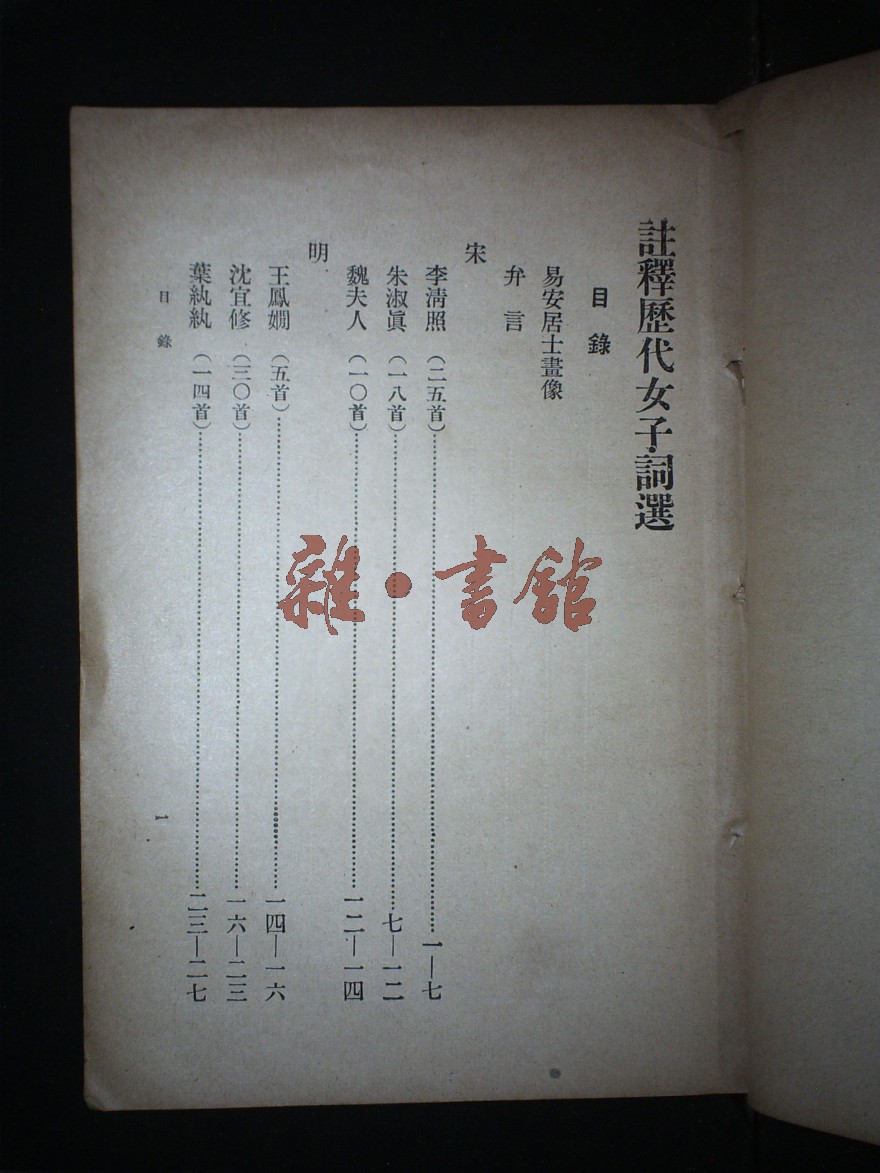 註釋歷代女子詞選
目錄
易安居士畫像
弁言
宋
李淸照(二五首)……一—七
朱淑眞(一八首)……七—一二
魏夫人(一〇首)……一二—一四
明
王鳳嫺(五首)……一四—一六
沈宜修(三〇首)……一六—二三
葉紈紈(一四首)……二三—二七
目錄
1
雜·書館